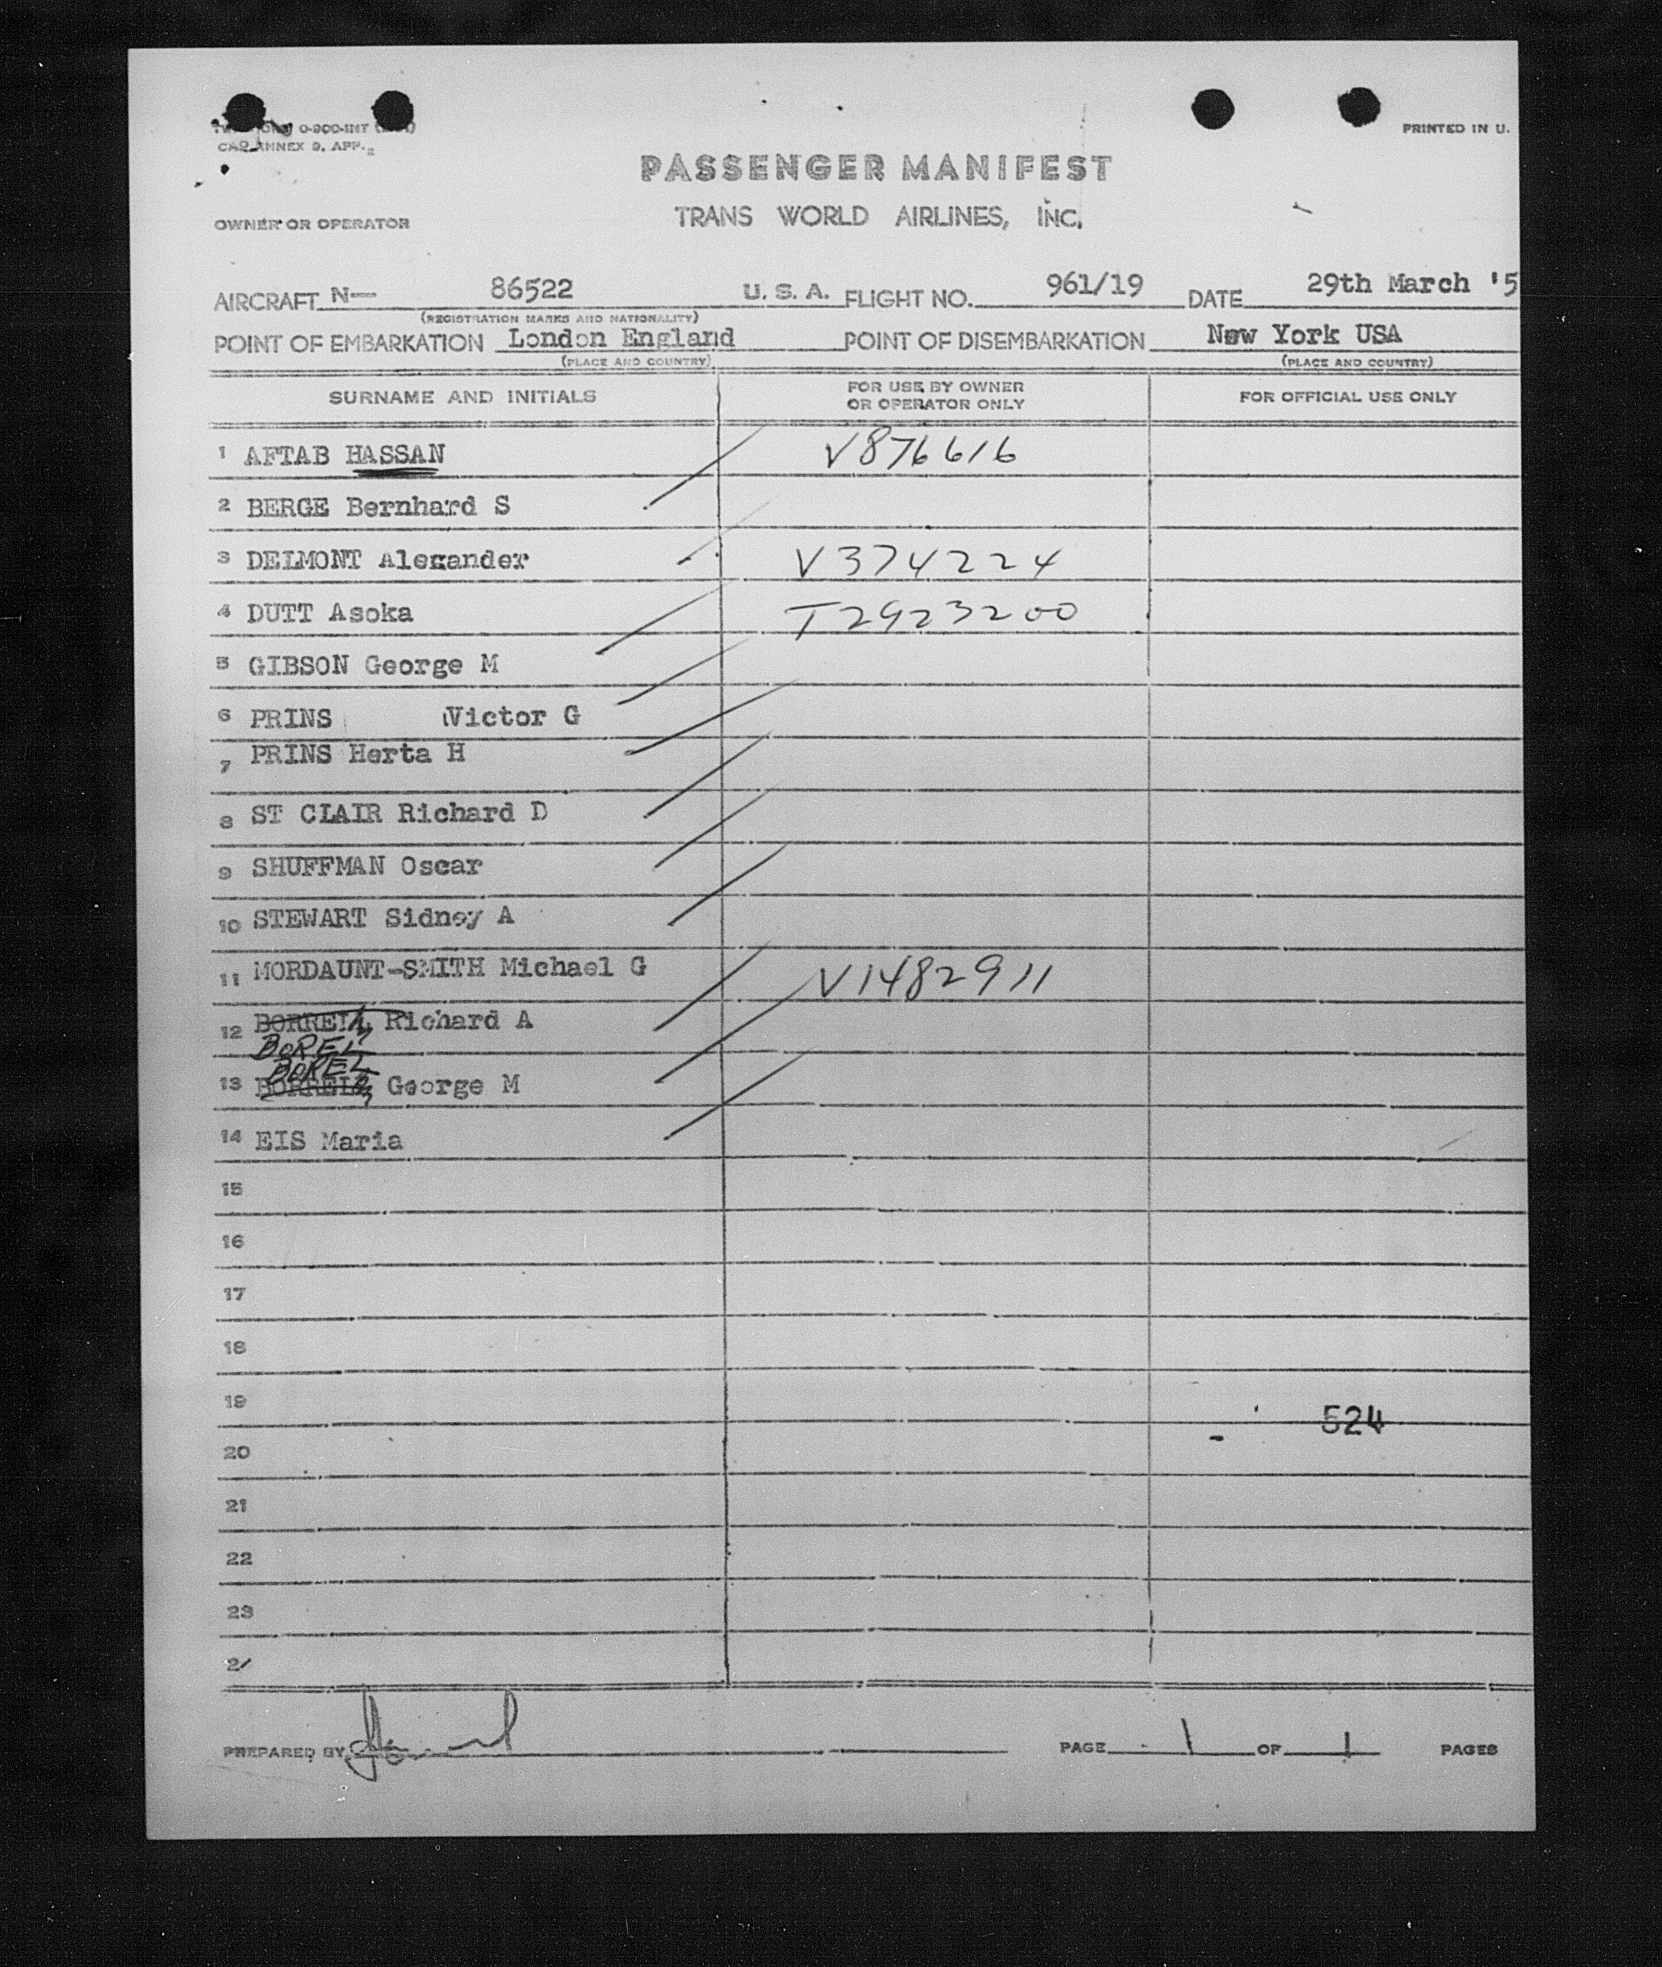 0-900-INT
ANNEX 9, APP.
PRINTED IN U.
PASSENGER MANIFEST
OWNER OR OPERATOR
TRANS WORLD AIRLINES, INC.
AIRCRAFT N— 86522 U. S. A. FLIGHT NO. 961/19 DATE 29th March '5
(REGISTRATION MARKS AND NATIONALITY)
POINT OF EMBARKATION London England POINT OF DISEMBARKATION New York USA
(PLACE AND COUNTRY) (PLACE AND COUNTRY)
SURNAME AND INITIALS FOR USE BY OWNER OR OPERATOR ONLY FOR OFFICIAL USE ONLY
1 AFTAB HASSAN V876616
2 BERGE Bernhard S
3 DELMONT Alexander V374224
4 DUTT Asoka T2923200
5 GIBSON George M
6 PRINS Victor G
7 PRINS Herta H
8 ST CLAIR Richard D
9 SHUFFMAN Oscar
10 STEWART Sidney A
11 MORDAUNT-SMITH Michael G V1482911
12 Richard A
BOREL
BOREL
13 George M
14 EIS Maria
15
16
17
18
19
524
20
21
22
23
2
PREPARED BY PAGE 1 OF 1 PAGES